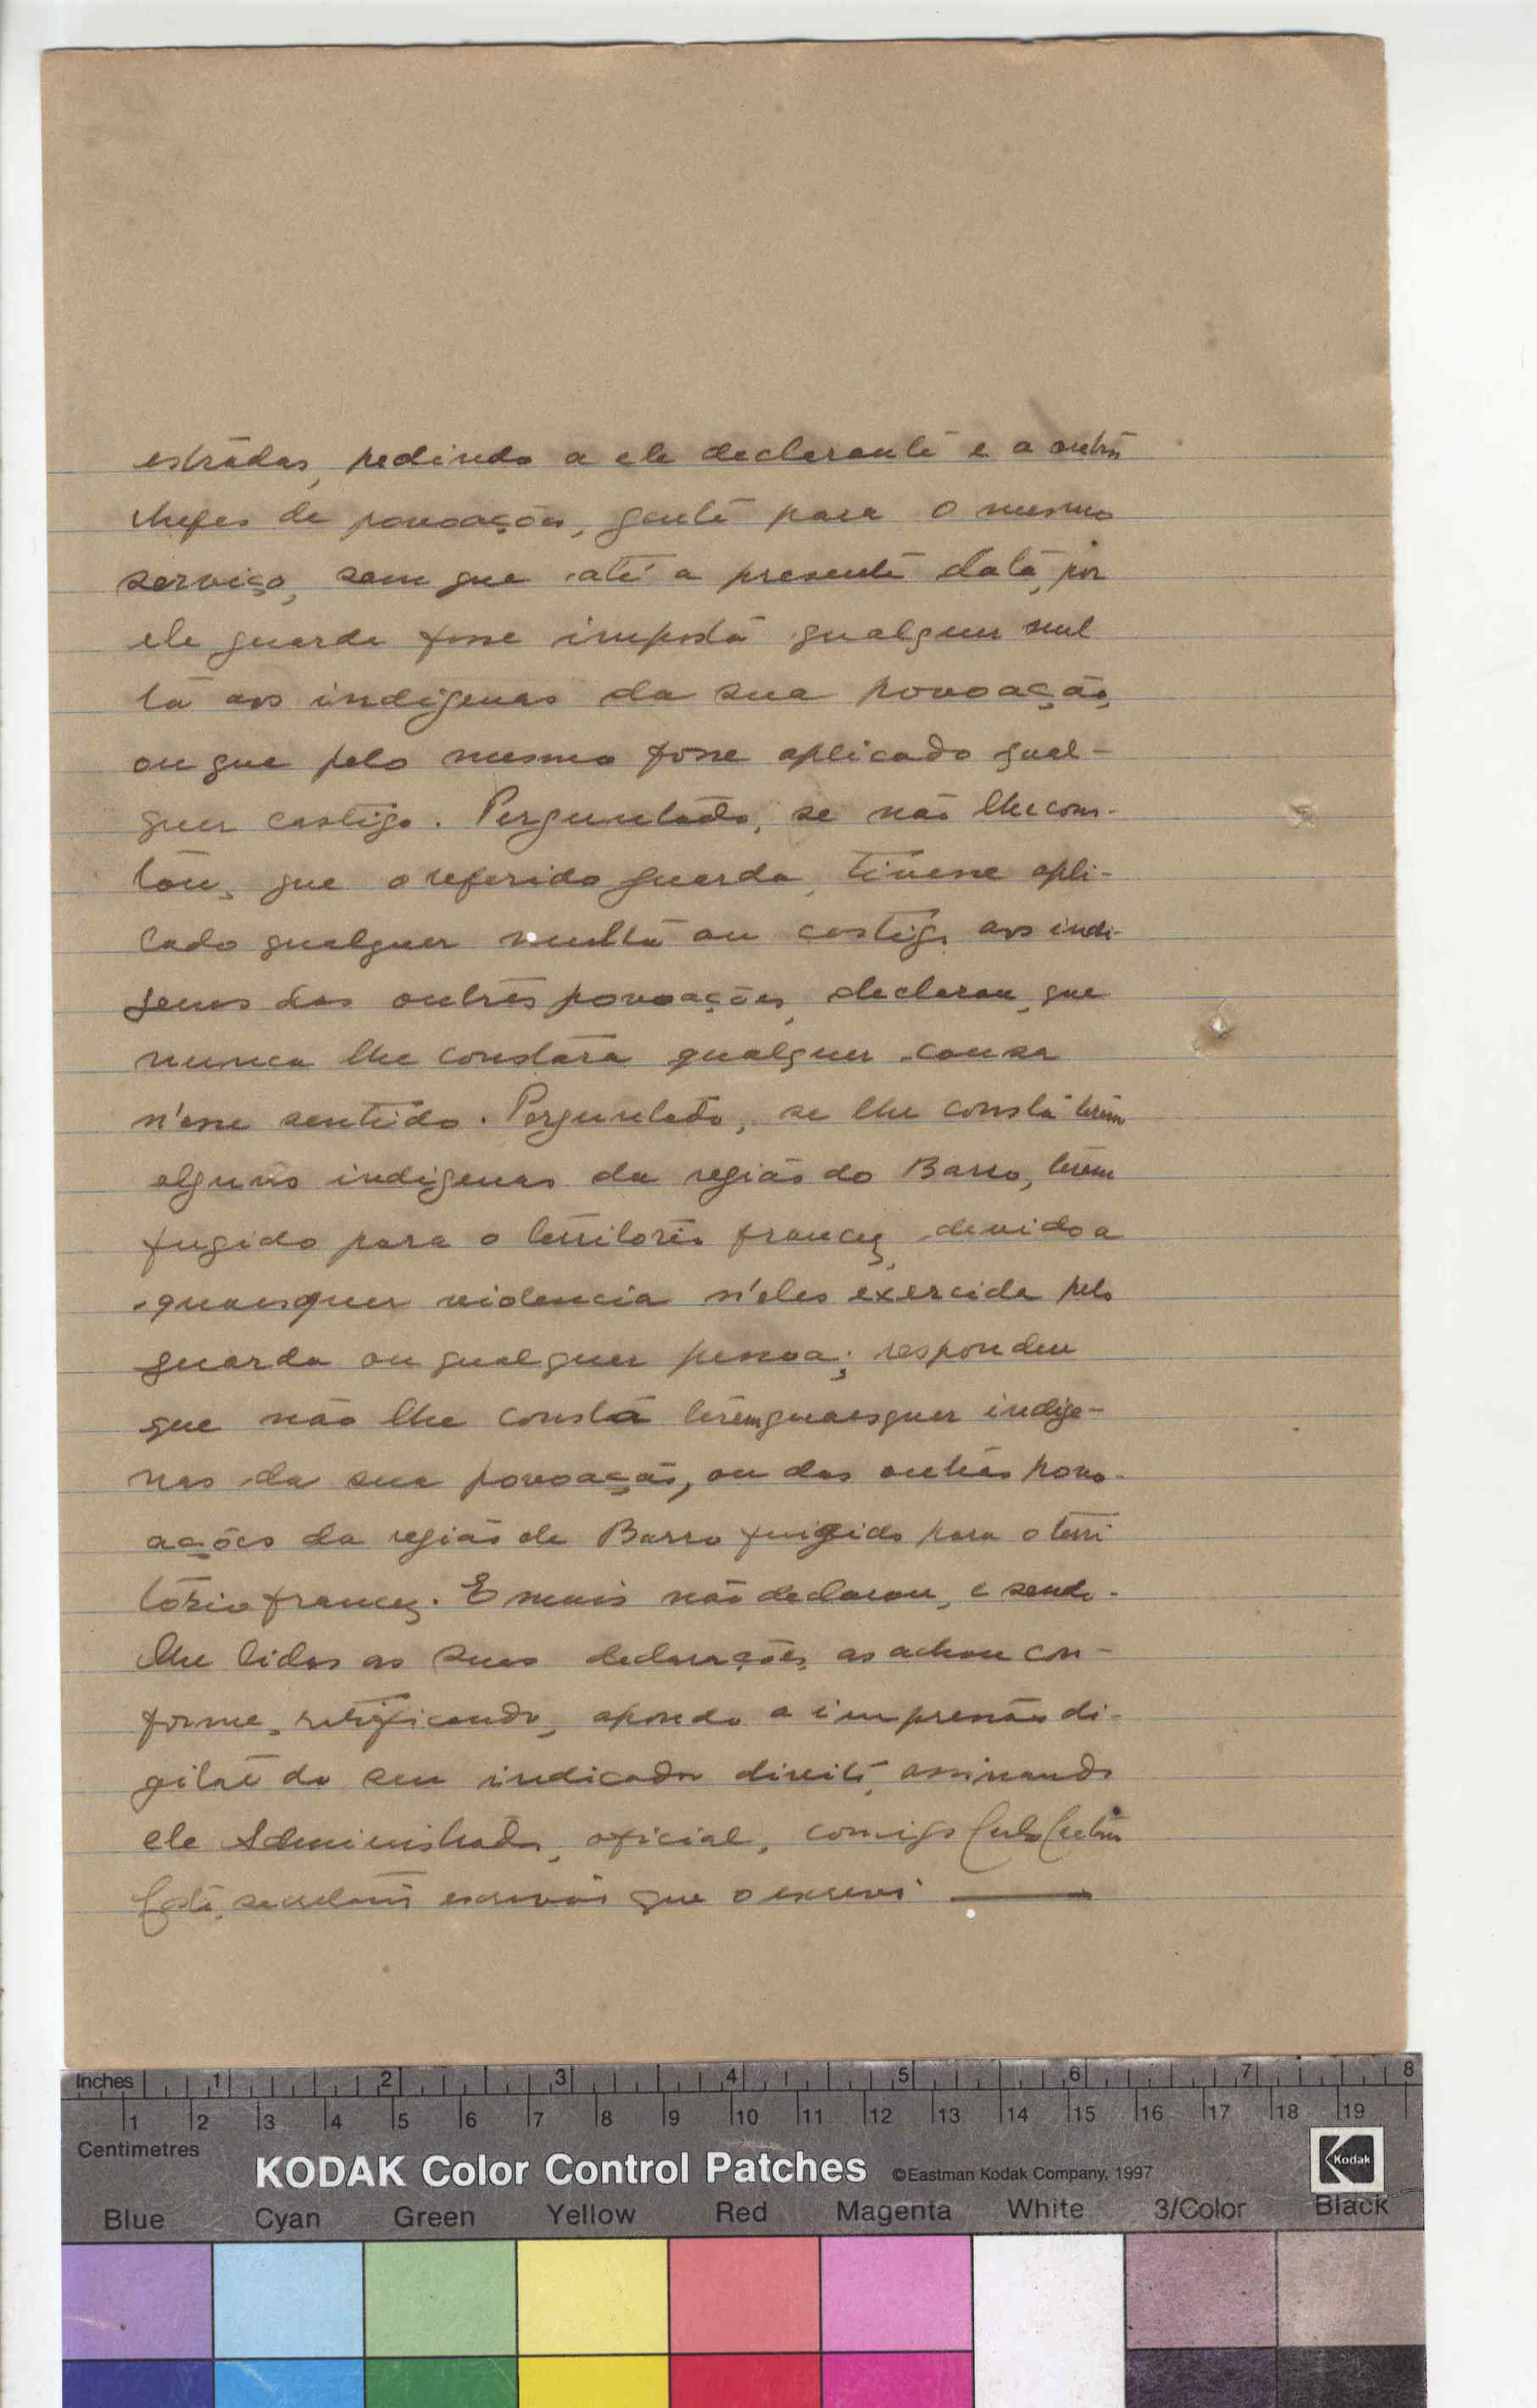 estradas, pedindo a ele declarante e a outros
chefes de povoações, gente para o mesmo
serviço, sem que até a presente data, por
ele guarda fosse imposta qualquer mul
ta aos indigenas da sua povoação,
ou que pelo mesmo fosse aplicado qual-
quer castigo. Perguntado, se não lhe cons-
tou, que o referido guarda, tivesse apli-
cado qualquer multa ou castigo aos indi-
genas das outras povoações, declarou, que
nunca lhe constára qualquer cousa
n'esse sentido. Perguntado, se lhe consta terem
alguns indigenas da região do Barro, terem
fugido para o territorio francez, devido a
quaesquer violencia n'eles exercida pelo
guarda ou qualquer pessoa; respondeu
que não lhe consta terem quaesquer indige-
nas da sua povoação, ou das outras povo-
ações da região de Barro fugido para o terri
tório francez. E mais não declarou, e sendo-
lhe lidas as suas declarações, as achou con-
forme, ratificando, apondo a impressão di-
gital do seu indicador direito, assinando
ele Administrador, oficial, comigo
secretario escrivão que o escrevi
Inches 1 2 3 4 5 6 7 8
1 2 3 4 5 6 7 8 9 10 11 12 13 14 15 16 17 18 19
Centimetres
KODAK Color Control Patches ©Eastman Kodak Company, 1997 Kodak
Blue Cyan Green Yellow Red Magenta White 3/Color Black